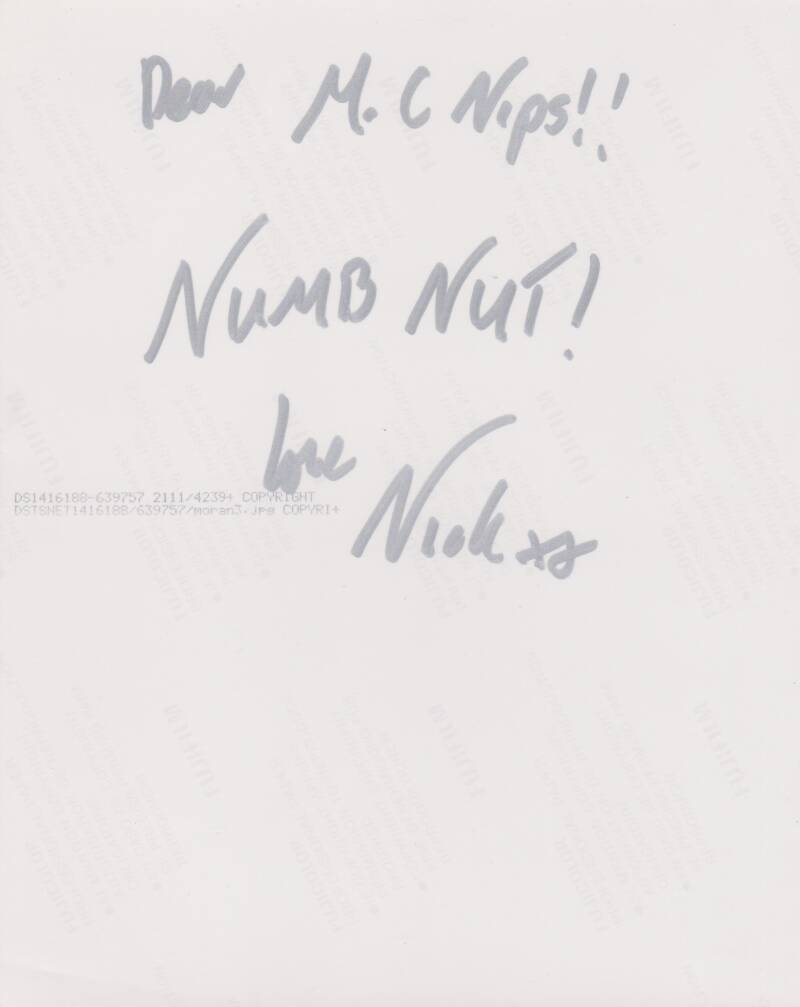 Dear M.C Nips!!
NUMB NUT!
love
Nick xx
DS1416188-639757 2111/4239+ COPYRIGHT
DSTSNET1416188/639757/moran3.jpg COPYRI+
FUJIFILM
FUJICOLOR